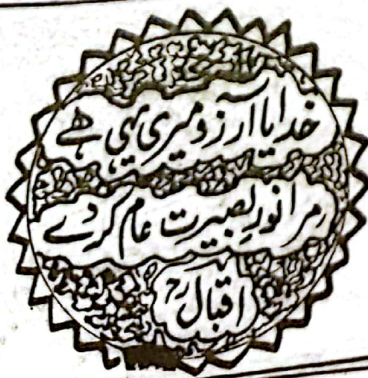 خدایا آرزو میری یہی ہے
مرا نورِ بصیرت عام کر دے
اقبالؒ